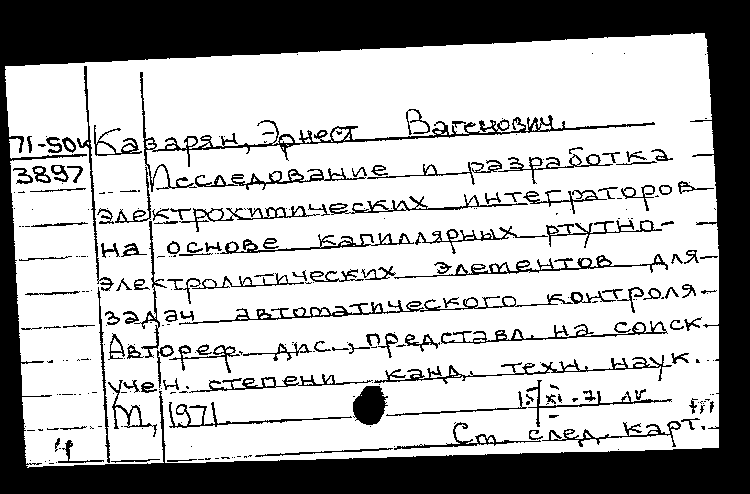 71-50к Казарян, Эрнест Вагенович.
3897 Исследование и разработка
электрохимических интеграторов
на основе капиллярных ртутно-
электролитических элементов для
задач автоматического контроля.
Автореф. дис., представл. на соиск.
учен. степени канд. техн. наук.
М., 1971.
15/XI-71
4 См. след. карт.